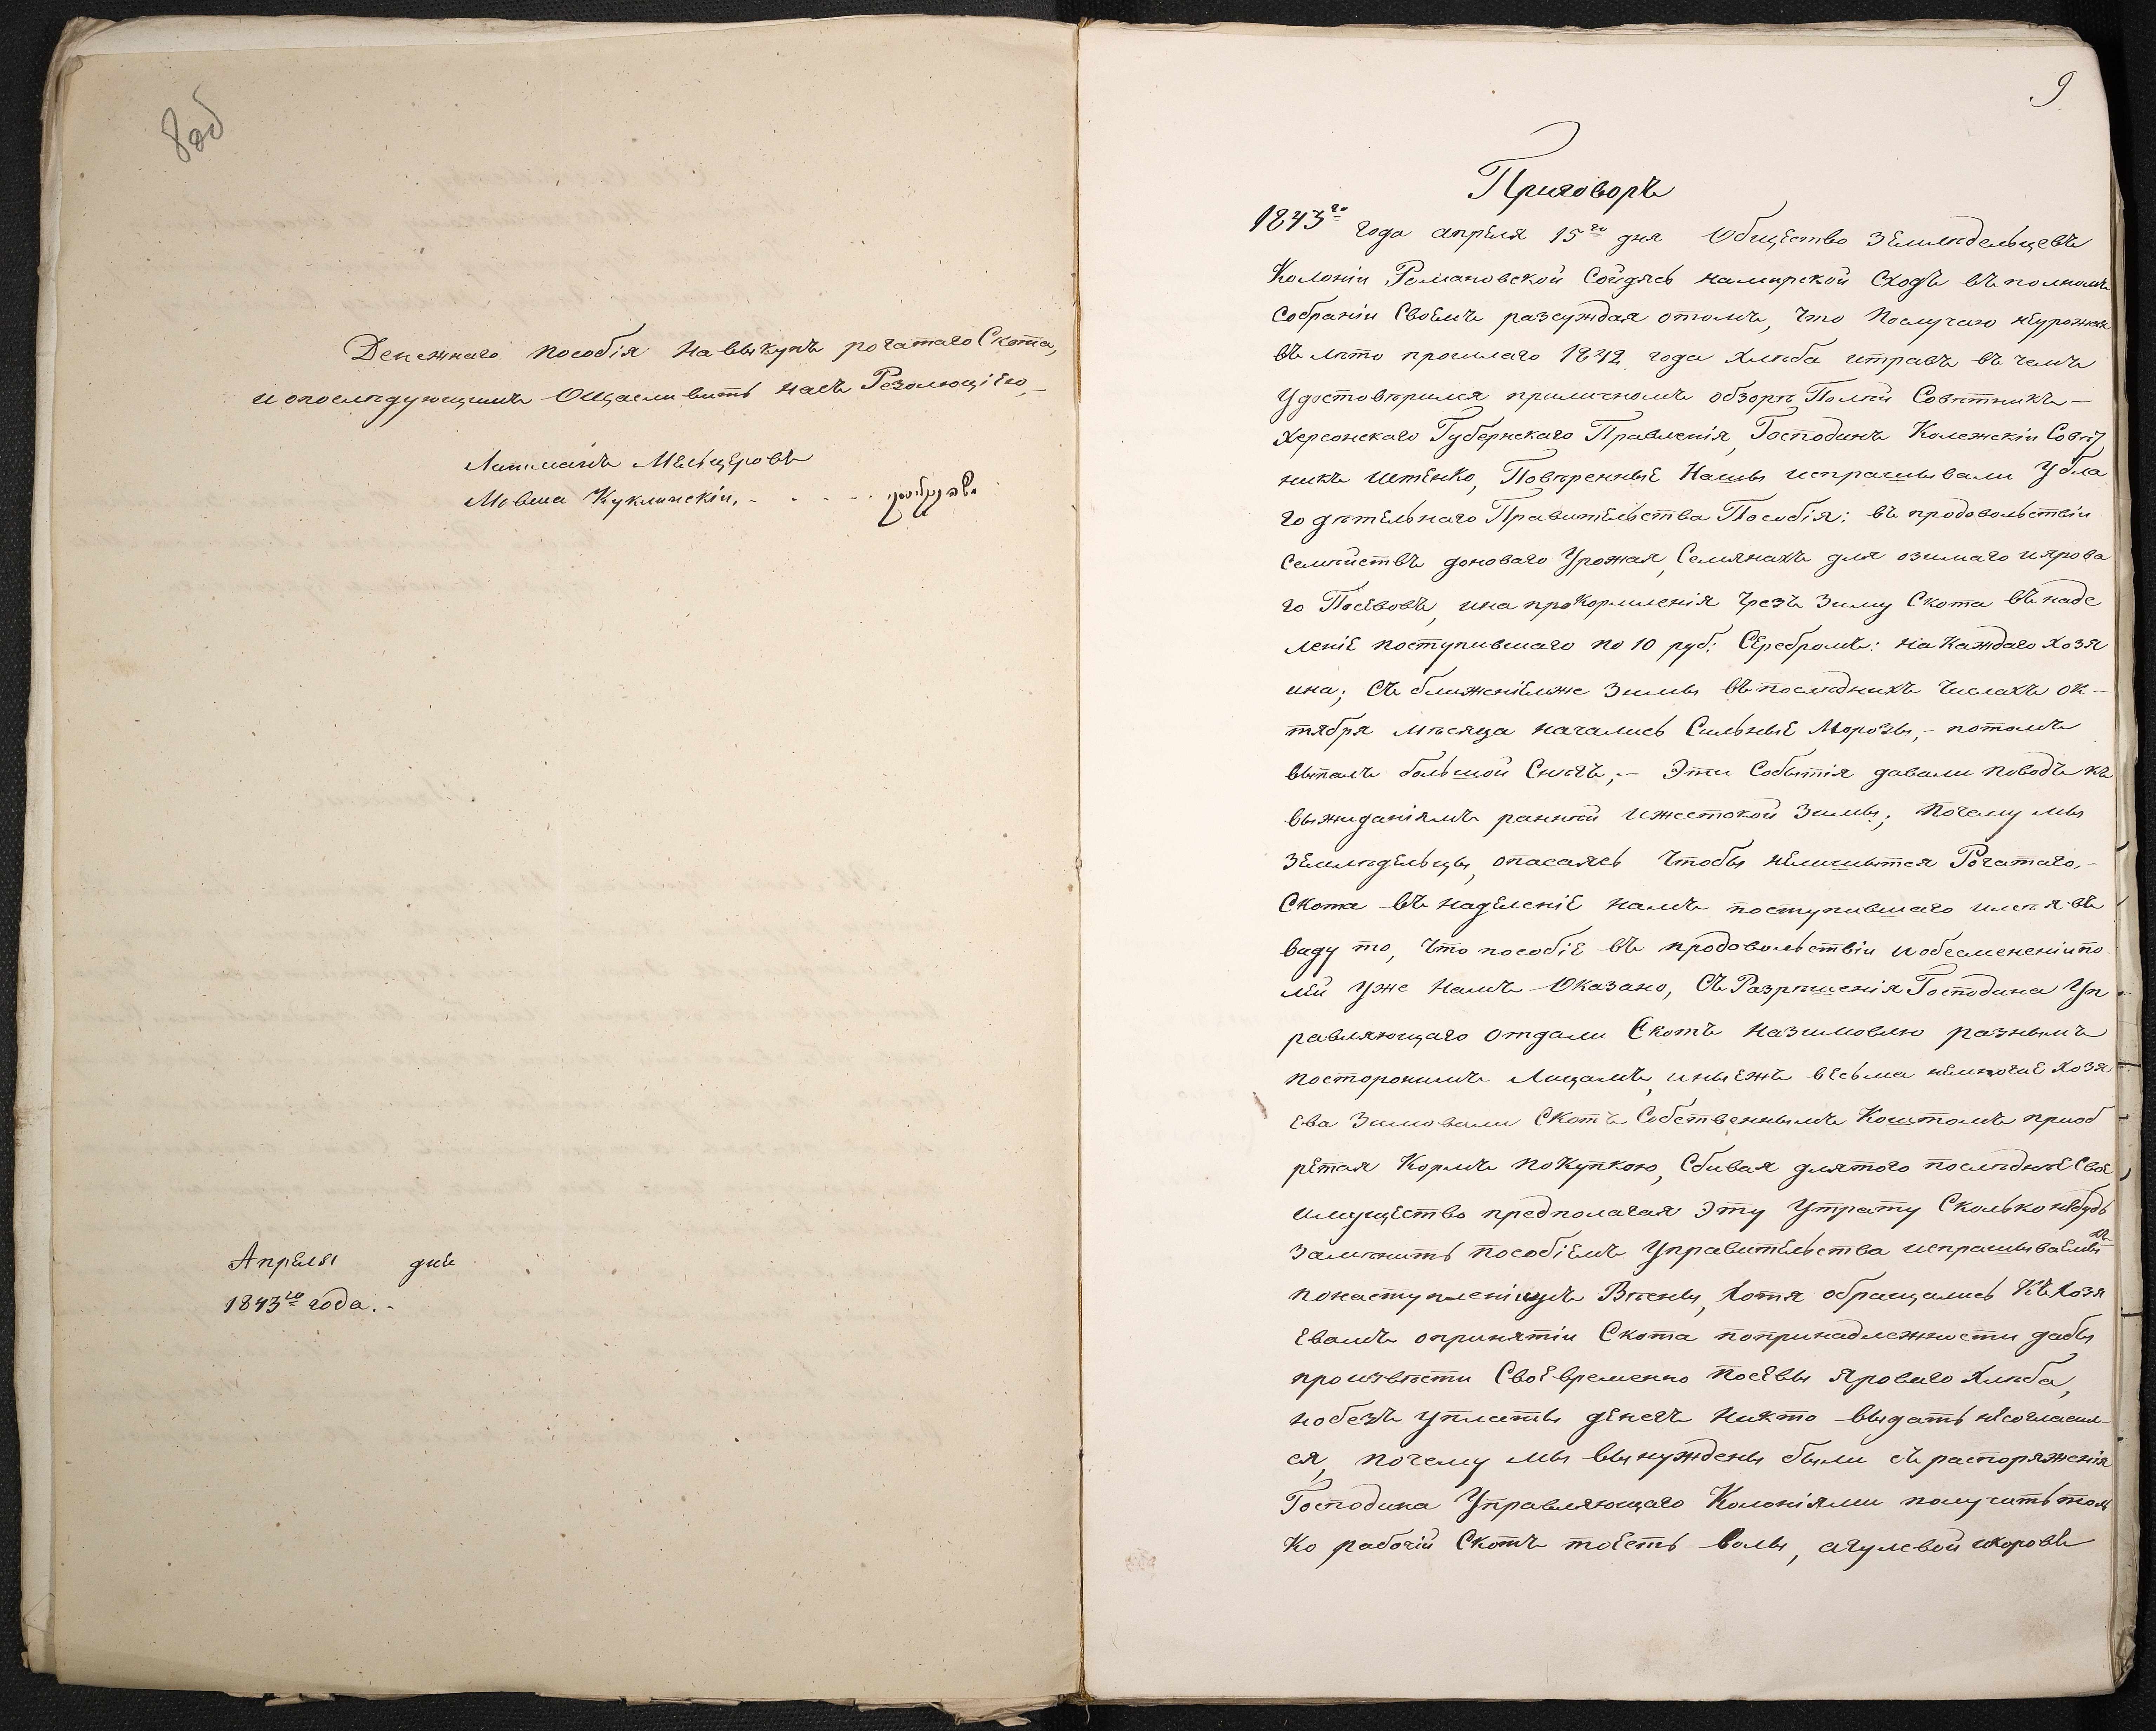 8 об
Денежнаго пособія на выкупъ рогатаго Скота,
и о послѣдующимъ Ощасливить насъ Резолюціею,-
Липманъ Мельцеровъ
Мовша Куклинскіи,-
Апреля дня
1843го года.-
9
Приговоръ
1843го года апреля 15го дня Общество Земледельцевъ
Колоніи Романовской Сойдясь на мирской Сходъ въ полномъ
Собраніи Своемъ разсуждая о томъ, что По случаю неурожая
въ лѣто прошлаго 1842 года хлѣба и травъ въ чемъ
Удостовѣрился при личномъ обзорѣ Полей Совѣтникъ-
Херсонскаго Губернскаго Правленія, Господинъ Колежскіи Совѣт
никъ Итенко, Повѣренные Наши испрашивали У бла
го дѣтельнаго Правительства Пособія: въ продовольствіи
Семѣйствъ до новаго Урожая, Семянахъ для озимаго и ярова
го Посевовъ, и на прокормленія чрезъ Зиму Скота въ наде
леніе поступившаго по 10 руб: Серебромъ: на каждаго хозя
ина; Съ ближеніемже Зимы въ послѣднихъ числахъ ок-
тября мѣсяца начались Сильные Морозы,- потомъ
выпалъ большой Снѣгъ;- Эти События давали поводъ къ
выжиданіямъ ранней и жестокой Зимы; Почему мы
Земледельцы, опасаясь чтобы нелишытся Рогатаго-
Скота въ наделеніе намъ поступившаго имѣя въ
виду то, что пособіе въ продовольствіи и обсемененіи по
лей уже намъ Оказано, Съ Разрѣшенія Господина Уп
равляющаго отдали Скотъ на зимовлю разнымъ
постороннимъ Лицамъ, и ныежъ весьма немногие хозя
ева Зимовали Скотъ Собственнымъ Коштомъ приоб
ретая Кормъ покупкою, Сбивая для того послѣднѣе Своё
имущество предполагая Эту Утрату Сколько нибудь
Замѣнить пособіемъ У правительства испрашиваемымъ
по наступленіи Вѣсны, хотя обращались Къ хозя
евамъ о принятіи Скота по принадлежности дабы
произвѣсти Своевременно посевы яроваго хлѣба,
но безъ уплаты денегъ никто выдать несогласил-
ся, почему мы вынуждены были съ распоряженія
Господина Управляющаго Колоніями получить толь
ко рабочій Скотъ тоесть волы, а гулевой и коровъ